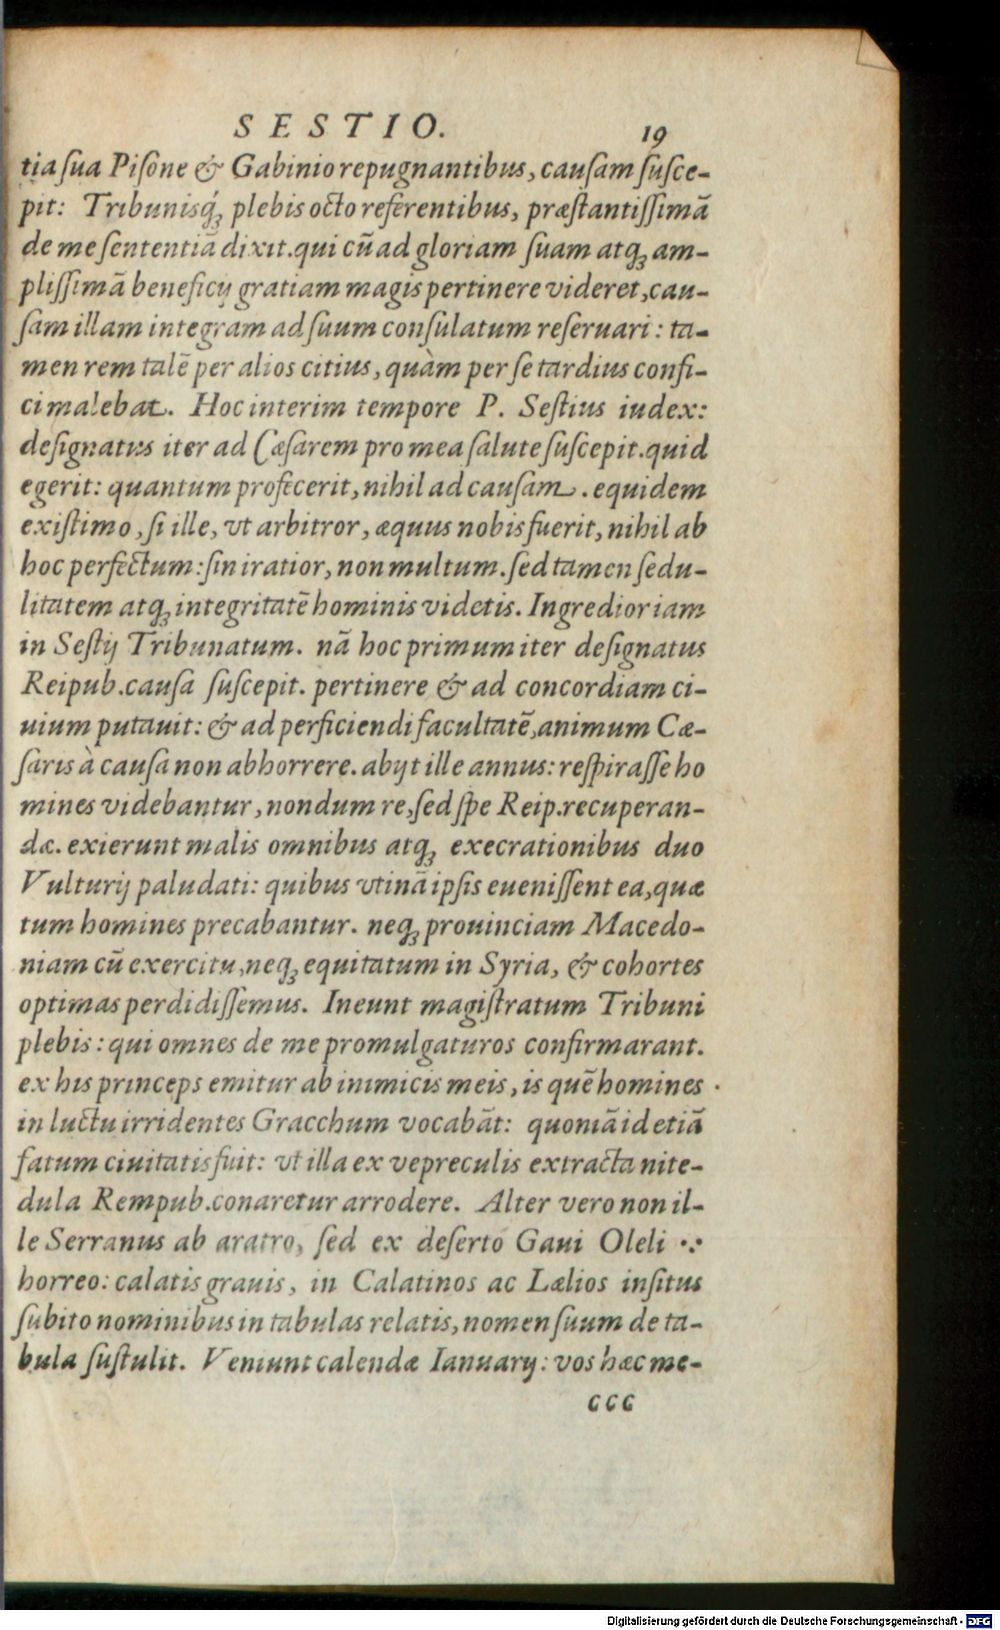 SESTIO. 19
tia sua Pisone & Gabinio repugnantibus, causam susce-
pit: Tribunisq́ꝫ plebis octo referentibus, præstantissimā
de me sententiā dixit. qui cū ad gloriam suam atqꝫ am-
plissimā beneficij gratiam magis pertinere videret, cau-
sam illam integram ad suum consulatum reseruari: ta-
men rem talē per alios citius, quàm per se tardius confi-
ci malebat. Hoc interim tempore P. Sestius iudex:
designatus iter ad Cæsarem pro mea salute suscepit. quid
egerit: quantum profecerit, nihil ad causam. equidem
existimo, si ille, vt arbitror, æquus nobis fuerit, nihil ab
hoc perfectum: sin iratior, non multum. sed tamen sedu-
litatem atqꝫ integritatē hominis videtis. Ingredior iam
in Sestij Tribunatum. nā hoc primum iter designatus
Reipub. causa suscepit. pertinere & ad concordiam ci-
uium putauit: & ad perficiendi facultatē, animum Cæ-
saris à causa non abhorrere. abijt ille annus: respirasse ho
mines videbantur, nondum re, sed spe Reip. recuperan-
dæ. exierunt malis omnibus atqꝫ execrationibus duo
Vulturij paludati: quibus vtinā ipsis euenissent ea, quæ
tum homines precabantur. neqꝫ prouinciam Macedo-
niam cū exercitu, neqꝫ equitatum in Syria, & cohortes
optimas perdidissemus. Ineunt magistratum Tribuni
plebis: qui omnes de me promulgaturos confirmarant.
ex his princeps emitur ab inimicis meis, is quē homines
in luctu irridentes Gracchum vocabāt: quoniā id etiā
fatum ciuitatis fuit: vt illa ex vepreculis extracta nite-
dula Rempub. conaretur arrodere. Alter vero non il-
le Serranus ab aratro, sed ex deserto Gaui Oleli
horreo: calatis grauis, in Calatinos ac Lælios insitus
subito nominibus in tabulas relatis, nomen suum de ta-
bula sustulit. Veniunt calendæ Ianuarij: vos hæc me-
ccc
Digitalisierung gefördert durch die Deutsche Forschungsgemeinschaft - DFG